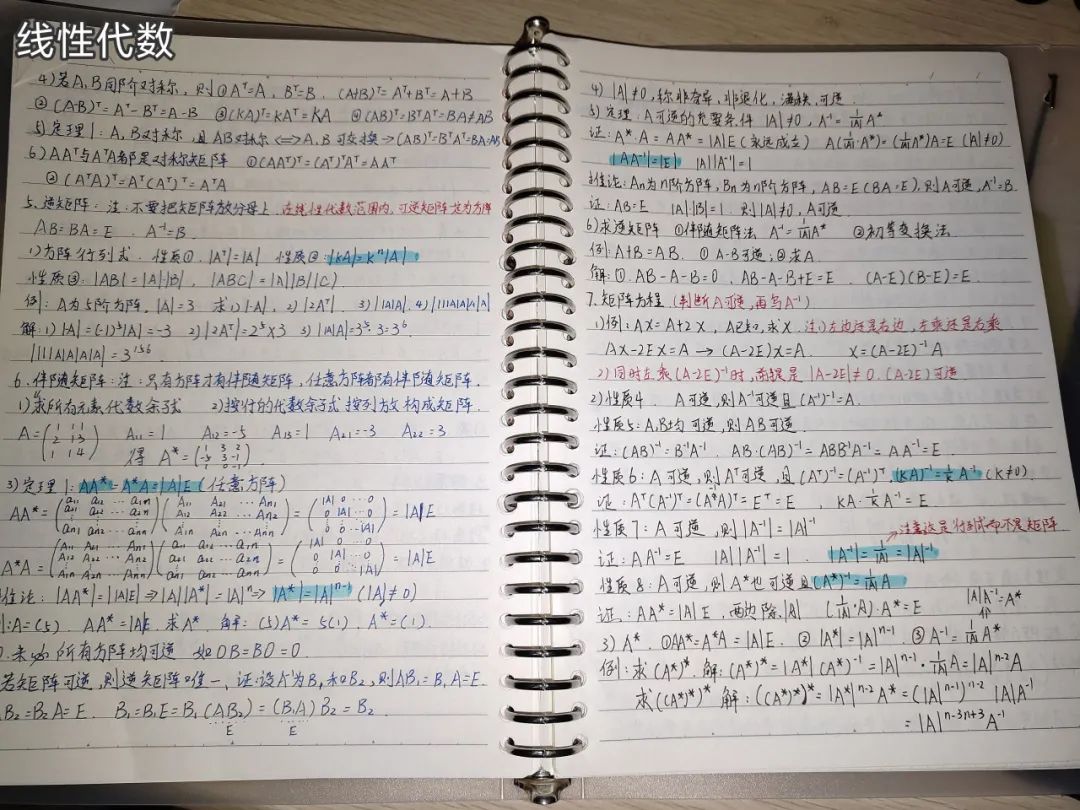 线性代数
4)若A,B同阶对称，则①Aᵀ=A, Bᵀ=B. (A+B)ᵀ=Aᵀ+Bᵀ=A+B
②(A-B)ᵀ=Aᵀ-Bᵀ=A-B ③(KA)ᵀ=KAᵀ=KA ④(AB)ᵀ=BᵀAᵀ=BA≠AB
5)定理1: A,B对称,且AB对称⟺A,B可交换→(AB)ᵀ=BᵀAᵀ=BA=AB
6)AAᵀ与AᵀA都是对称矩阵 ①(AAᵀ)ᵀ=(Aᵀ)ᵀAᵀ=AAᵀ
②(AᵀA)ᵀ=Aᵀ(Aᵀ)ᵀ=AᵀA
5.逆矩阵:注:不要把矩阵放分母上.在线性代数范围内,可逆矩阵一定为方阵
AB=BA=E. A⁻¹=B.
1)方阵行列式. 性质①. |Aᵀ|=|A| 性质②:|KA|=Kⁿ|A|.
性质③:|AB|=|A|·|B|, |ABC|=|A||B||C|
例:A为5阶方阵, |A|=3 求1)|-A|, 2)|2Aᵀ| 3)||A|A|, 4)||||A|A|A|A|
解:1)|-A|=(-1)⁵|A|=-3 2)|2Aᵀ|=2⁵×3 3)||A|A|=3⁵·3=3⁶.
||||A|A|A|A|=3¹⁵⁶.
6.伴随矩阵:注:只有方阵才有伴随矩阵,任意方阵都有伴随矩阵.
1)求所有元素代数余子式 2)按行的代数余子式按列放构成矩阵.
A= A₁₁=1 A₁₂=-5 A₁₃=1 A₂₁=-3 A₂₂=3
得 A*=
3)定理1:AA*=A*A=|A|E(任意方阵)
AA*= (a₁₁ a₁₂ … a₁ₙ) (A₁₁ A₂₁ … Aₙ₁) = (|A| 0 … 0) =|A|E
A*A= =|A|E
推论:|AA*|=||A|E|⇒|A||A*|=|A|ⁿ⇒|A*|=|A|ⁿ⁻¹(|A|≠0)
例:A=(5). AA*=|A|E. 求A*. 解:(5)A*=5(1). A*=(1).
所有方阵均可逆 如0B=B0=0.
若矩阵可逆,则逆矩阵唯一、证:设A⁻¹为B₁和B₂,则AB₁=B₁A=E.
B₂=B₂A=E. B₁=B₁E=B₁(AB₂)=(B₁A)B₂=B₂.
E E
4) |A|≠0,称非奇异,非退化,满秩,可逆.
5)定理:A可逆的充要条件 |A|≠0, A⁻¹=1/|A| A*
证:A*·A=AA*=|A|E(永远成立) A(1/|A|·A*)=(1/|A|A*)A=E (|A|≠0)
|AA⁻¹|=|E| |A||A⁻¹|=1
推论:Aₙ为n阶方阵, Bₙ为n阶方阵, AB=E(BA=E),则A可逆,A⁻¹=B.
证:AB=E |A|·|B|=1. 则|A|≠0, A可逆.
6)求逆矩阵 ①伴随矩阵法. A⁻¹=1/|A|A* ②初等变换法.
例:A+B=AB. ①A-E可逆;②求A.
解:①. AB-A-B=0. AB-A-B+E=E. (A-E)(B-E)=E.
7.矩阵方程(判断A可逆,再写A⁻¹)
1)例:AX=A+2X, A已知,求X. 注1)左边还是右边,左乘还是右乘
AX-2EX=A→(A-2E)X=A. X=(A-2E)⁻¹A
2)同时左乘(A-2E)⁻¹时,前提是|A-2E|≠0.(A-2E)可逆
2)性质4. A可逆,则A⁻¹可逆且(A⁻¹)⁻¹=A.
性质5:A,B均可逆,则AB可逆.
证:(AB)⁻¹=B⁻¹A⁻¹. AB·(AB)⁻¹=ABB⁻¹A⁻¹=AA⁻¹=E.
性质6:A可逆,则Aᵀ可逆,且(Aᵀ)⁻¹=(A⁻¹)ᵀ (KA)⁻¹=1/K A⁻¹(K≠0)
证:Aᵀ(A⁻¹)ᵀ=(A⁻¹A)ᵀ=Eᵀ=E. KA·1/K A⁻¹=E
性质7:A可逆,则|A⁻¹|=|A|⁻¹ →注意这是行列式而不是矩阵
证:AA⁻¹=E |A||A⁻¹|=1. |A⁻¹|=1/|A|=|A|⁻¹
性质8:A可逆,则A*也可逆且(A*)⁻¹=1/|A|A
证:AA*=|A|E. 两边除|A| (1/|A|·A)·A*=E |A|A⁻¹=A*
3)A*. ①AA*=A*A=|A|E. ②|A*|=|A|ⁿ⁻¹. ③A⁻¹=1/|A|A*
例:求(A*)*. 解:(A*)*=|A*|(A*)⁻¹=|A|ⁿ⁻¹·1/|A|A=|A|ⁿ⁻²A
求((A*)*)* 解:((A*)*)*=|A*|ⁿ⁻²A*=(|A|ⁿ⁻¹)ⁿ⁻²|A|A⁻¹
=|A|ⁿ⁻³ⁿ⁺³A⁻¹